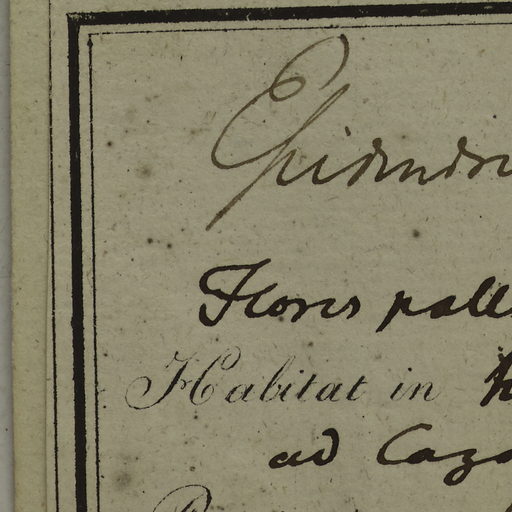 Epidendru
Flores pall
Habitat in h
ad Caza